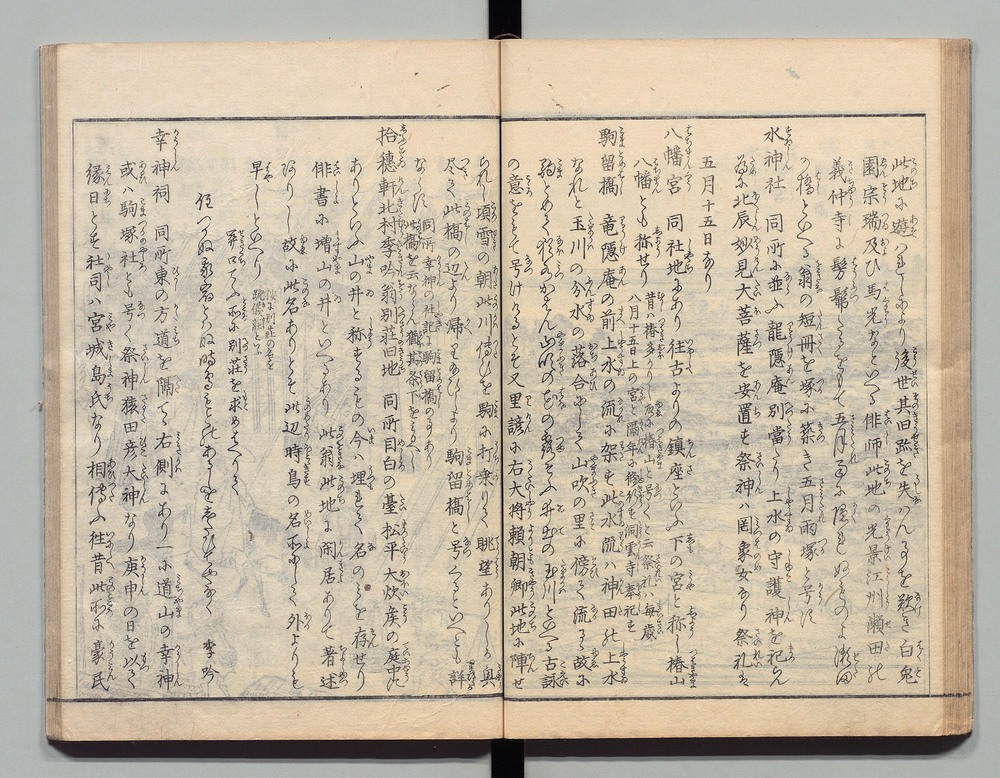 此地に遊はれしより後世其旧跡を失はんことを歎き白兎
園宗瑞及ひ馬光なといへる俳師此地の光景江州瀬田の
義仲寺に髣髴たるをもて五月雨に隠れぬものよ瀬田
の橋といへる翁の短冊を塚に築き五月雨塚と号す
水神社 同所に並ふ龍隠庵別當たり上水の守護神を祀らん
為に北辰妙見大菩薩を安置す祭神ハ罔象女なり祭礼は
五月十五日なり
八幡宮 同社地にあり往古よりの鎮座といふ下の宮と称し椿山
八幡とも称せり
昔ハ椿多かりし故に椿山と号くと云祭礼ハ毎歳
八月十五日上の宮と隔年に修行す洞雲寺奉祀す
駒留橋 竜隠庵の前上水の流に架す此水流ハ神田の上水
なれと玉川の分水の落合にして山吹の里に傍て流るゝ故に
駒とめて猶水かはん山吹の花の露そふ井出の玉川といへる古詠
の意をとりて号けけるとそ又里諺に右大将頼朝卿此地に陣せ
られし頃雪の朝此川傍ひを駒に打乗りて眺望ありしか興
尽て此橋の辺より帰りたまひしより駒留橋と号くるといへとも詳
ならす
同所幸神の社記に駒留橋の事あり
此橋を云ならん猶其条下をみるへし
拾穂軒北村季吟翁別荘旧地 同所目白の臺松平大炊矦の庭中に
ありといふ山の井と称するもその今ハ埋もれて名のミを存せり
俳書に増山の井といへるあり此翁此地に閑居ありて著述
なりし故に此名ありとそ此辺時鳥の名所にして外よりも
早しといへり
葬口てふ所に別荘を求めはへりて
後に別荘の名を
疏儀荘といふ
住つかぬ家
季吟
幸神祠 同所東の方道を隔てゝ右側にあり一に道山の幸神
或ハ駒塚社とも号く祭神猿田彦大神なり庚申の日を以て
縁日とす社司ハ宮城島氏なり相傳ふ往昔此所に豪民